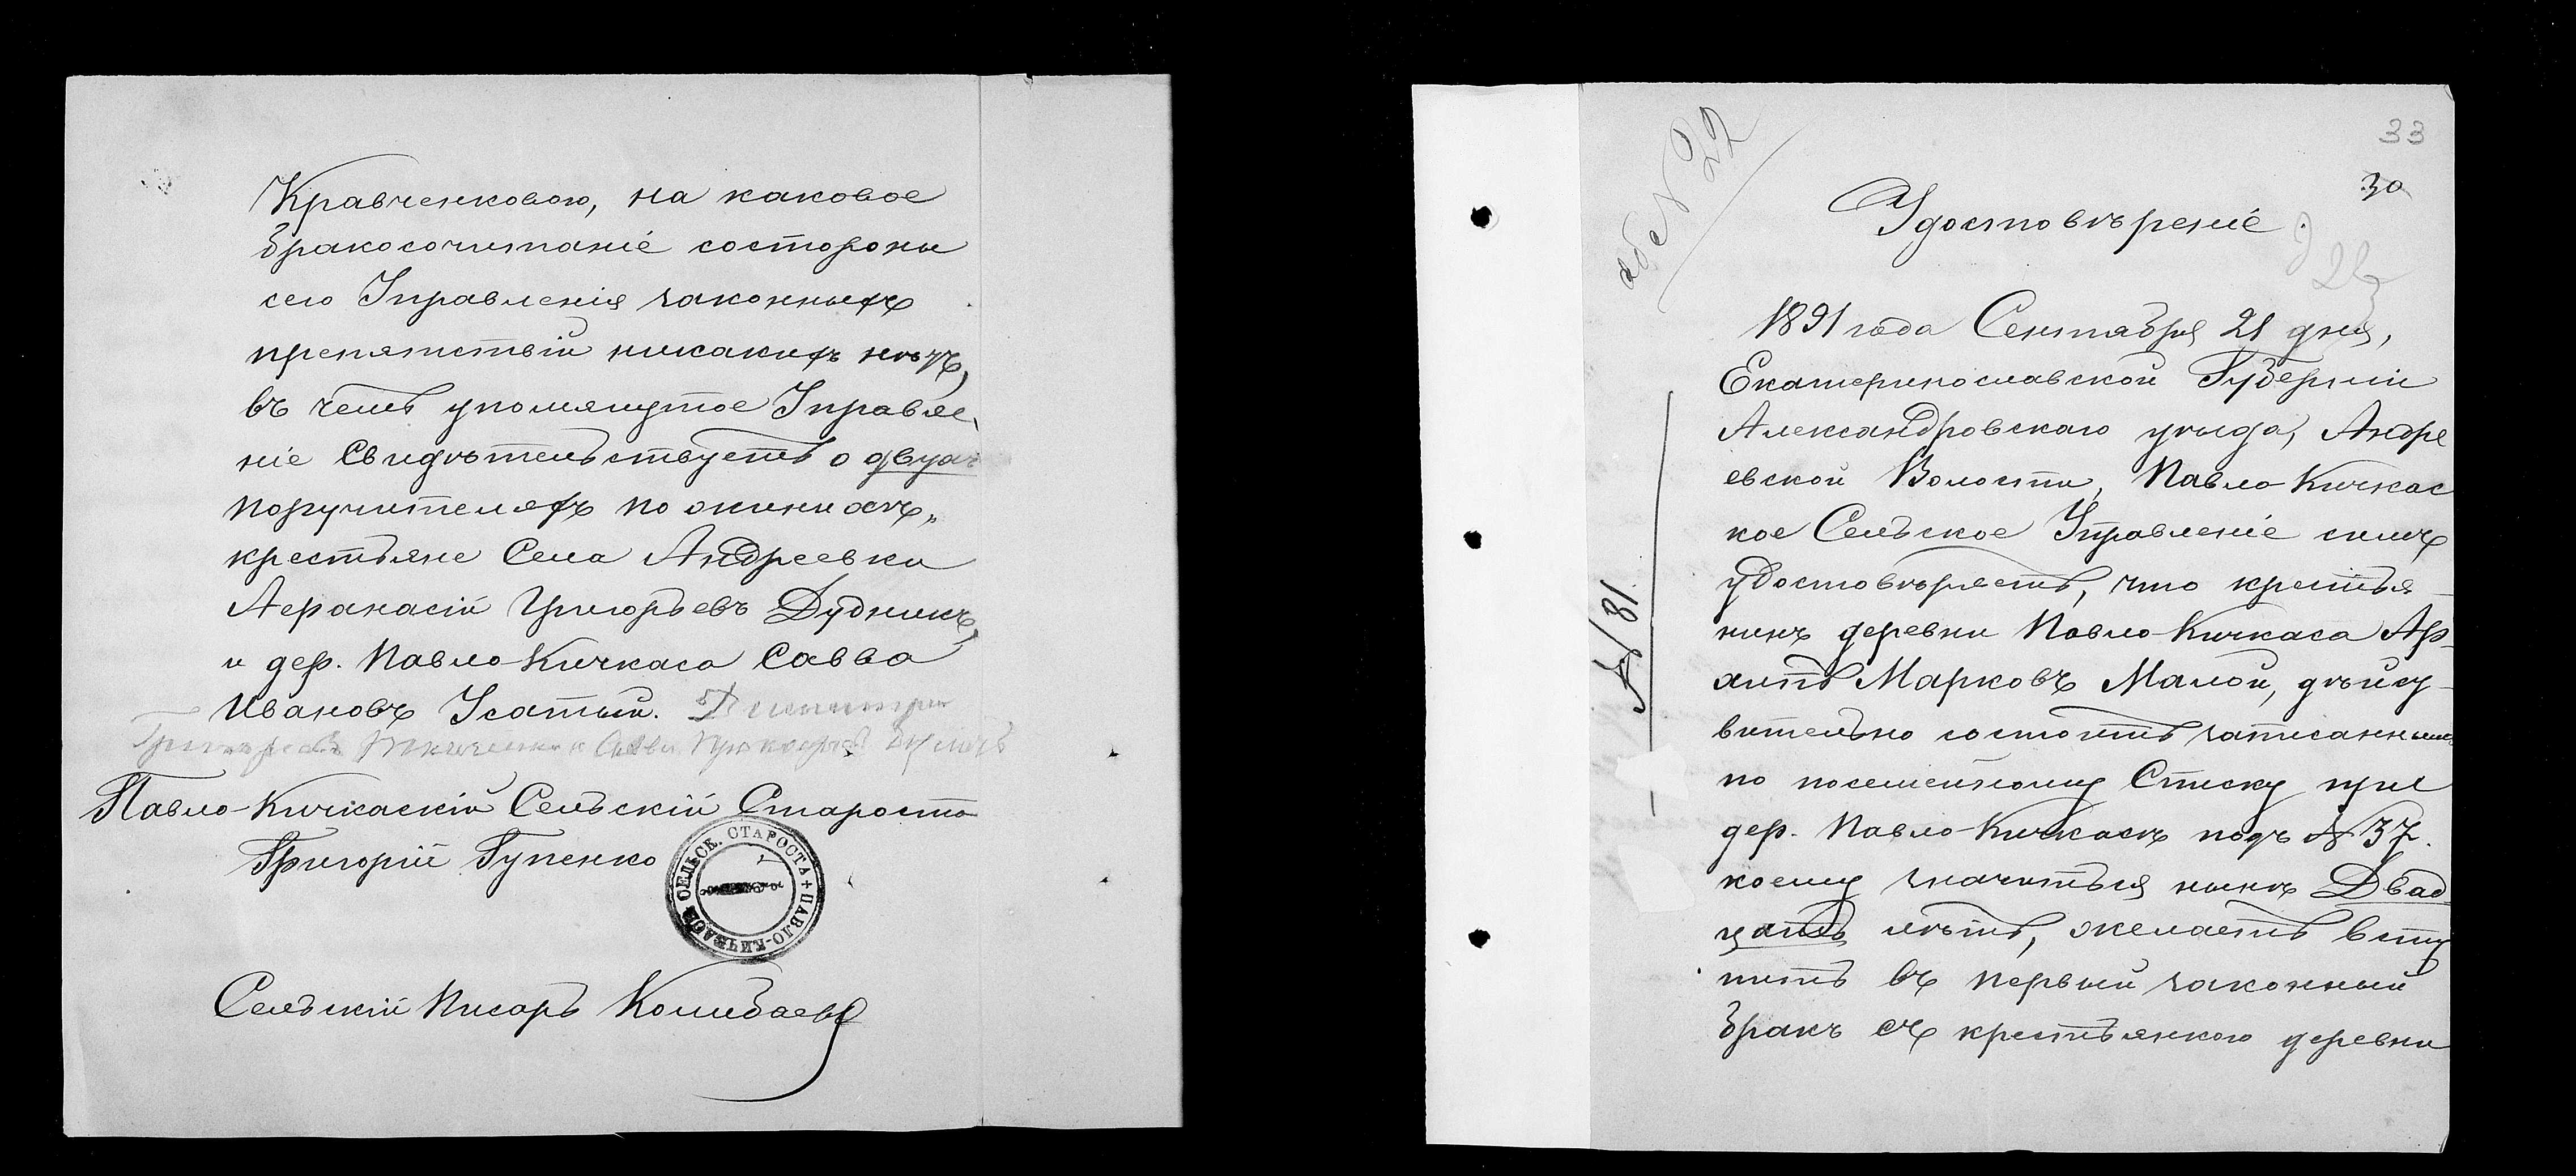 Кравченковою, на каковое
бракосочитаніе состороны
сего Управленія законныхъ
препятствій никакихъ нѣтъ,
въ чемъ упомянутое Управле-
ніе Свидѣтельствуетъ о двухъ
поручителяхъ по женихѣ,,
крестьяне Села Андреевки
Афанасій Григорьевъ Дудникъ,
и дер. Павло-Кичкаса Савва
Ивановъ Усатый. Димитрій
Павло-Кичкаскій Сельскій Староста
Григорій Гупенко
СЕЛЬСК. СТАРОСТА + ПАВЛО-КИЧКАС
Сельскій Писарь
33
30
обс N 22
Удостовѣреніе.
1891 года Сентября 21 дня,
Екатеринославской Губерніи
Александровскаго уѣзда, Андре
евской Волости, Павло-Кичкас
кое Сельское Управленіе симъ
удостовѣряетъ, что крестья-
нинъ деревни Павло-Кичкаса
Марковъ Малой, дѣйсу-
вительно состоитъ записаннымъ
по посемейному Списку при
дер. Павло-Кичкасѣ подъ № 37.
коему значиться нынѣ Двад
цать лѣтъ, желаетъ всту
пить въ первый законный
бракъ съ крестьянкою деревни
№ 81